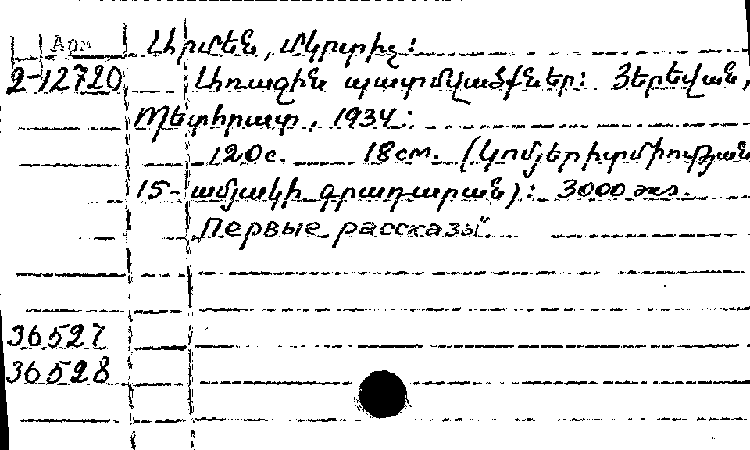 Арм
Արմեն, Մկրտիչ:
2-12720 Առաջին պատմվածքներ: Յերեվան,
Պետհրատ, 1934:
120с. 18см. (Կոմյերիտմիության
15-ամյակի գրադարան): 3000 экз.
„Первые рассказы".
36527
36528